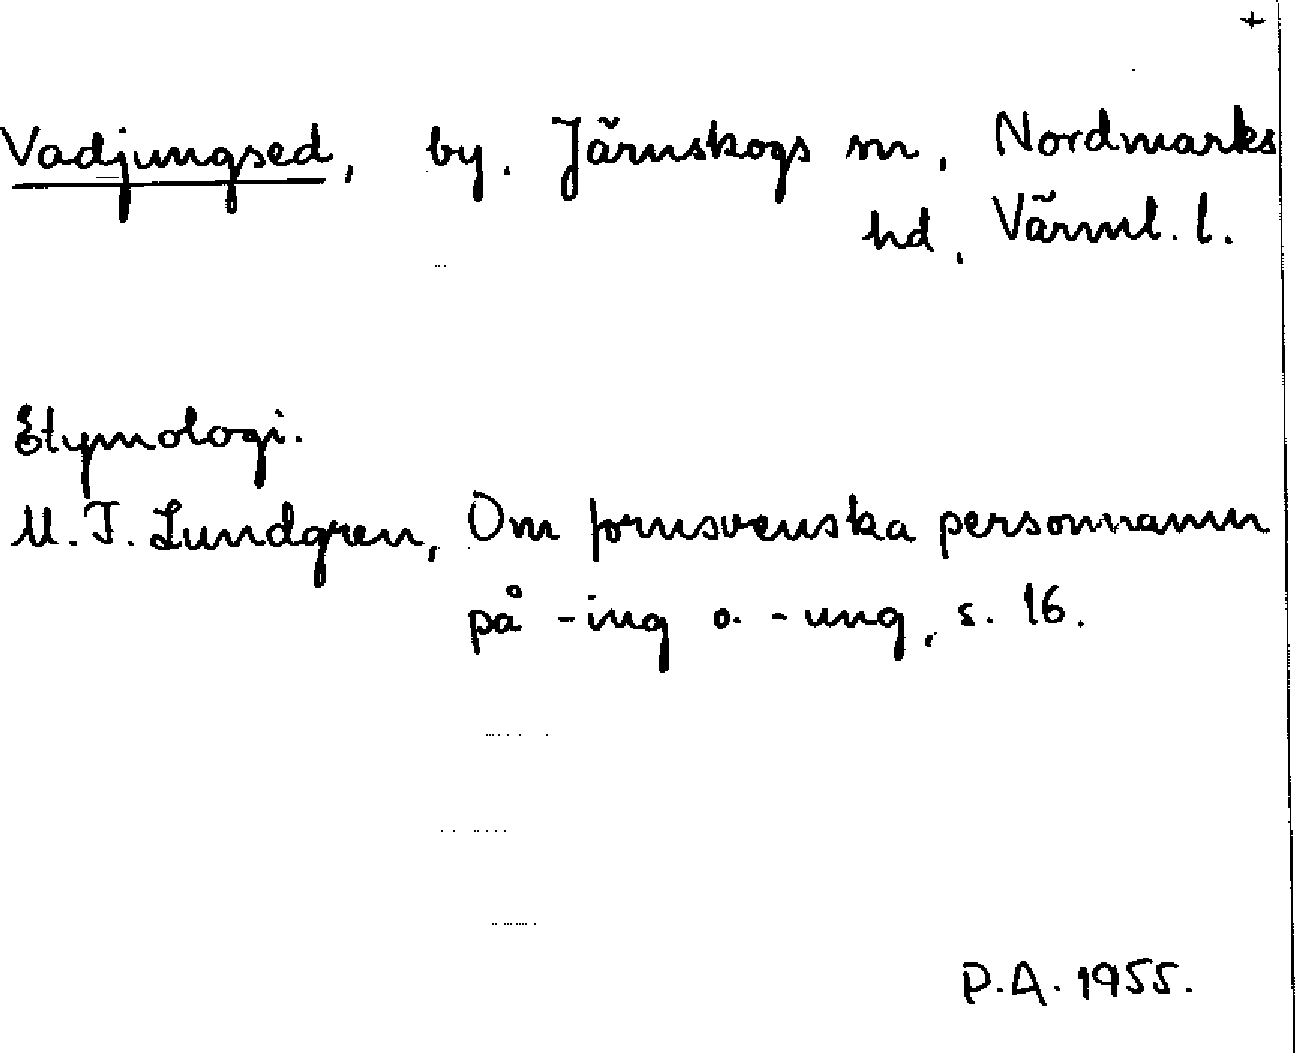 +
Vadjungsed, by. Järnskogs sn, Nordmarks
hd, Värml. l.
Etymologi.
M. F. Lundgren, Om fornsvenska personnamn
på -ing o. -ung, s. 16.
P.A. 1955.